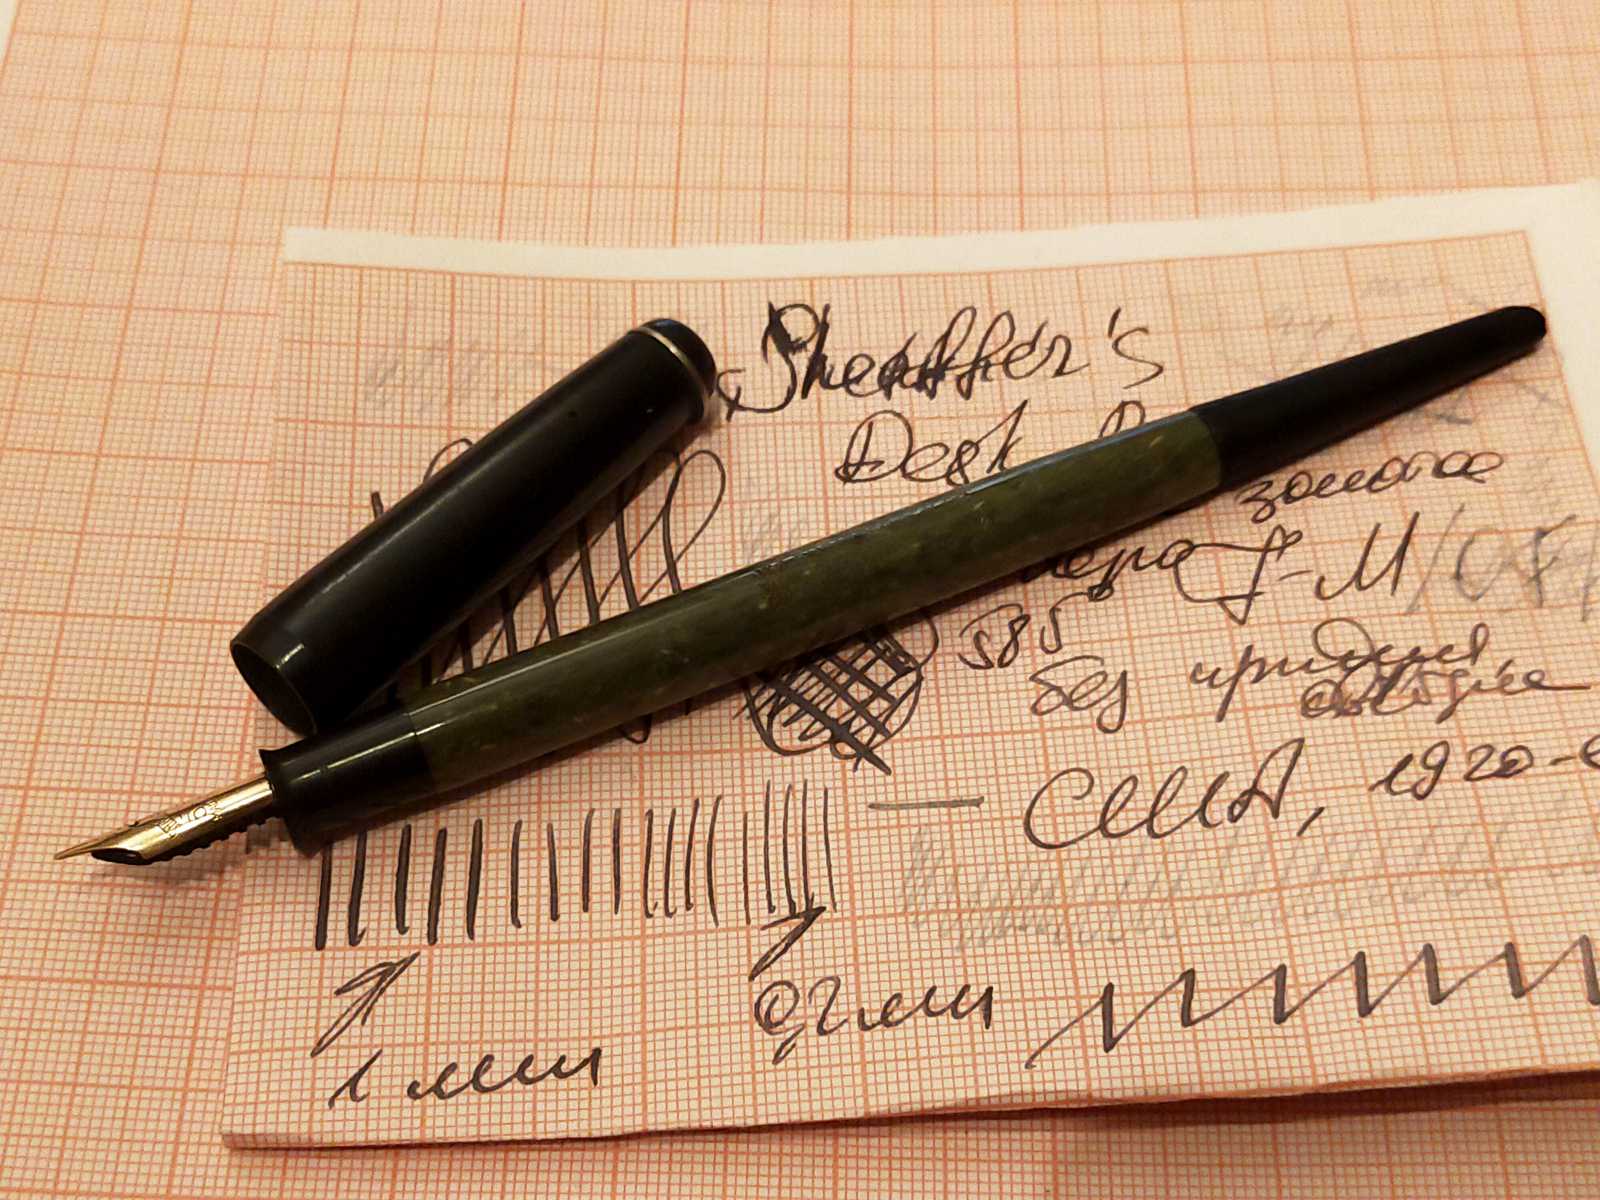 Sheaffer's
Desk
золотое
перо F-M/
585
без иридия
США, 1920-е
1 мм
0,2 мм